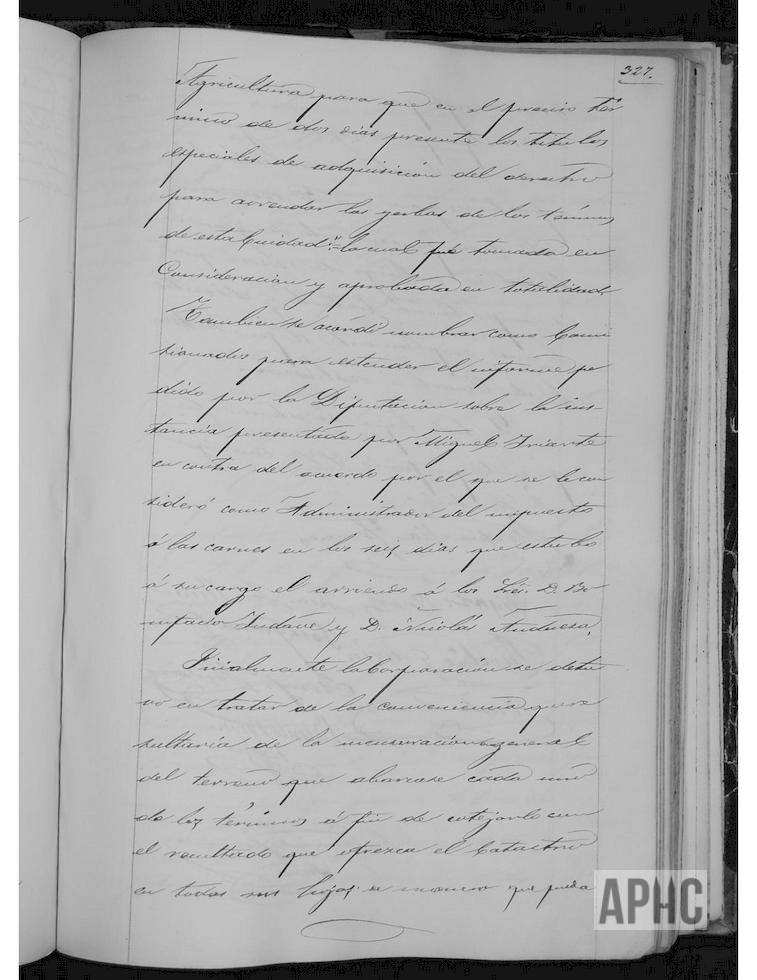 327.
Agricultura para que en el preciso tér
mino de dos dias presente los titulos
especiales de adquisición del derecho
para arrendar las yerbas de los términos
de esta Ciudad:" la cual fué tomada en
Consideracion y aprobada en totalidad.
Tambien se acordó nombrar como Comi
sionados para estender el informe pe
dido por la Diputacion sobre la ins-
tancia presentada por Miguel Iriarte
en contra del acuerdo por el que se le con
sideró como Administrador del impuesto
á las carnes en los seis dias que estubo
á su cargo el arriendo á los Sres. D. Bo
nifacio y D. Nicolás Andueza.
Finalmente la Corporación se detu
vo en tratar de la conveniencia que re
sultaria de la mensuración general
del terreno que abarcase cada uno
de los términos á fin de cotejarlo con
el resultado que ofrezca el Catastro
en todas sus hojas; de manera que pueda
APHC